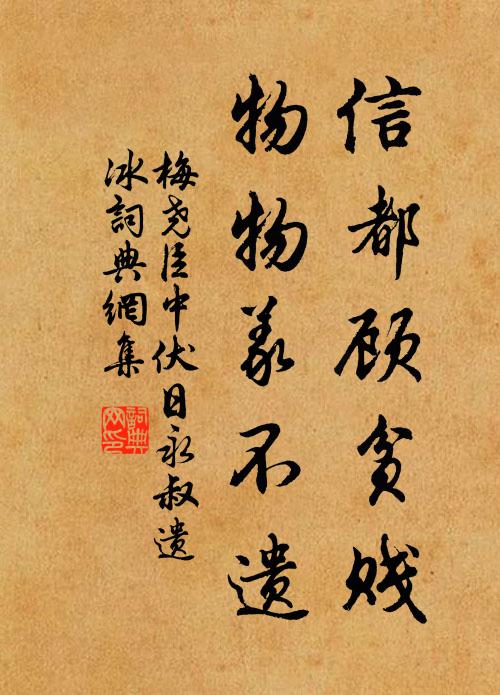 信都顾贫贱
物物义不遗
梅尧臣中伏日永叔遗
冰词典網集
詞典网印